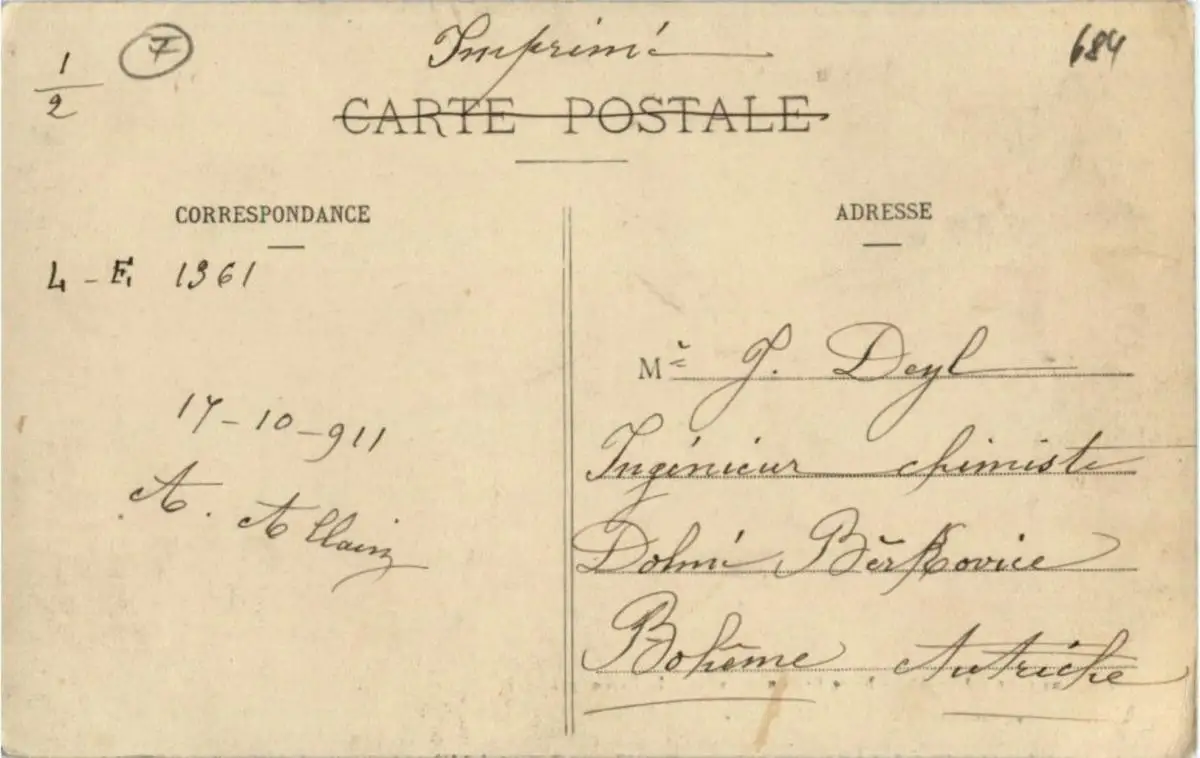 1/2
7
Imprimé
684
CARTE POSTALE
CORRESPONDANCE
L - E. 1361
17-10-911
A. Allain
ADRESSE
Mr J. Deyl
Ingénieur chimiste
Dolní Běrkovice
Bohême Autriche